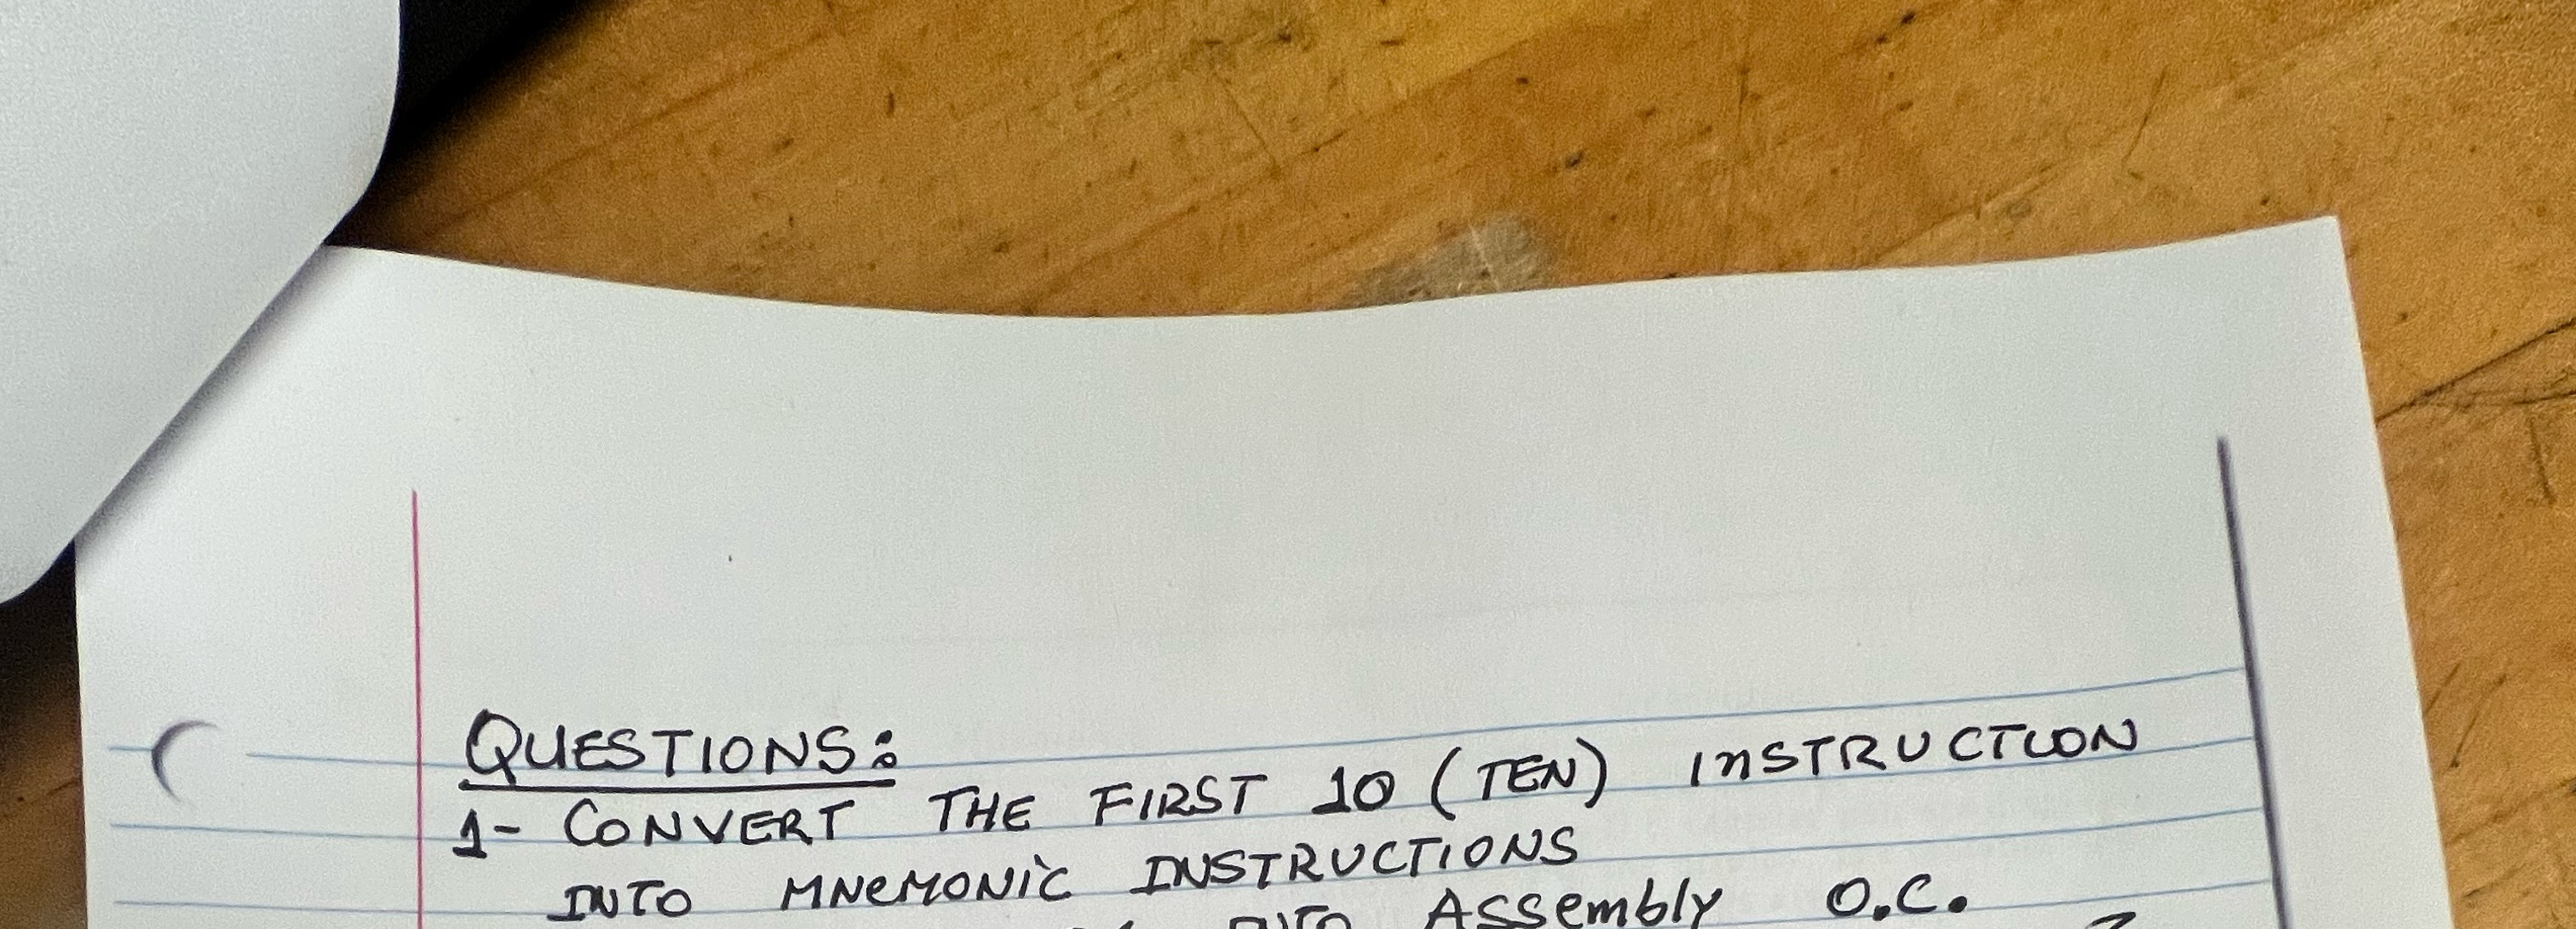 QUESTIONS:
1- CONVERT THE FIRST 10 (TEN) INSTRUCTION
INTO MNEMONIC INSTRUCTIONS
INTO Assembly O.C.